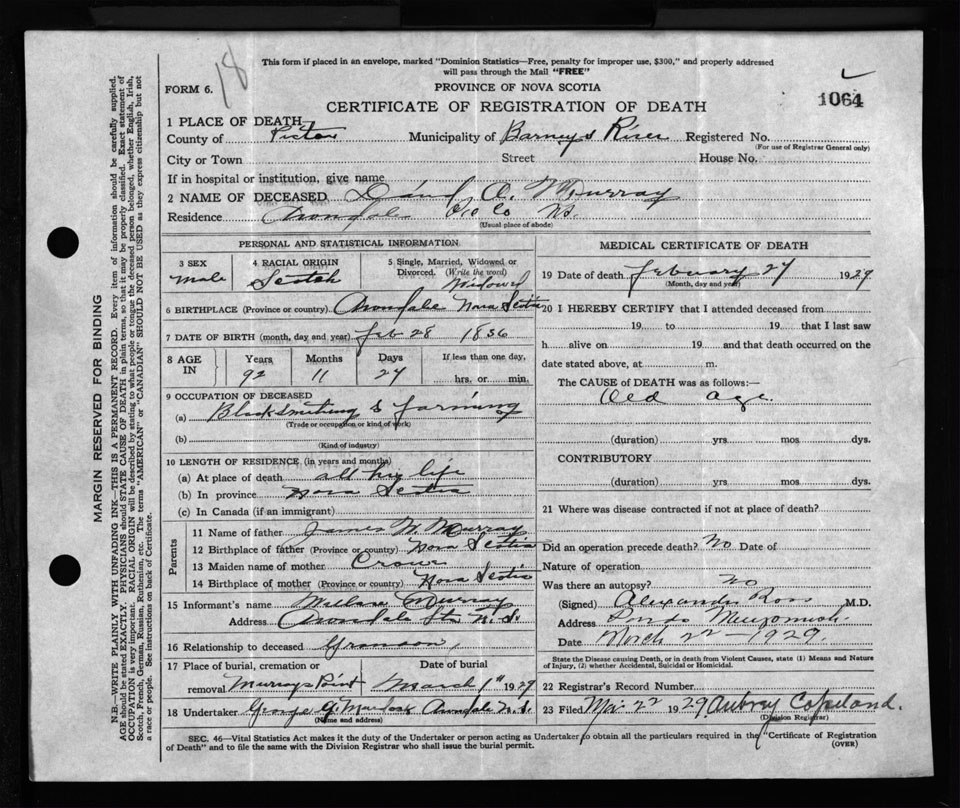 18
This form if placed in an envelope, marked "Dominion Statistics—Free, penalty for improper use, $300," and properly addressed
will pass through the Mail "FREE"
FORM 6.
PROVINCE OF NOVA SCOTIA
CERTIFICATE OF REGISTRATION OF DEATH
1064
1 PLACE OF DEATH
County of Pictou Municipality of Barneys River Registered No.
(For use of Registrar General only)
City or Town Street House No.
If in hospital or institution, give name
2 NAME OF DECEASED A. Murray
Residence Avondale Co NS.
(Usual place of abode)
PERSONAL AND STATISTICAL INFORMATION
3 SEX
male
4 RACIAL ORIGIN
Scotch
5 Single, Married, Widowed or
Divorced. (Write the word)
Widowed
6 BIRTHPLACE (Province or country) Avondale Nova Scotia
7 DATE OF BIRTH (month, day and year) Feb 28 1836
8 AGE
IN
Years Months Days If less than one day,
92 11 27 hrs. or min.
9 OCCUPATION OF DECEASED
(a) Blacksmithing & farming
(Trade or occupation or kind of work)
(b)
(Kind of industry)
10 LENGTH OF RESIDENCE (in years and months)
(a) At place of death all his life
(b) In province Nova Scotia
(c) In Canada (if an immigrant)
Parents
11 Name of father James Murray
12 Birthplace of father (Province or country) Nova Scotia
13 Maiden name of mother
14 Birthplace of mother (Province or country) Nova Scotia
15 Informant's name Murray
Address Avondale Sta N.S.
16 Relationship to deceased Granson
17 Place of burial, cremation or Date of burial
removal Murrays Point March 1st 1929
18 Undertaker George Murdock Avondale N.S.
(Name and address)
MEDICAL CERTIFICATE OF DEATH
19 Date of death February 27 1929
(Month, day and year)
20 I HEREBY CERTIFY that I attended deceased from
19 to 19 that I last saw
h alive on 19 and that death occurred on the
date stated above, at m.
The CAUSE of DEATH was as follows:—
Old age.
(duration) yrs. mos. dys.
CONTRIBUTORY
(duration) yrs. mos. dys.
21 Where was disease contracted if not at place of death?
Did an operation precede death? No Date of
Nature of operation
Was there an autopsy? No
(Signed) Alexander Ross M.D.
Address
Date March 22 - 1929
State the Disease causing Death, or in death from Violent Causes, state (1) Means and Nature
of Injury, (2) whether Accidental, Suicidal or Homicidal.
22 Registrar's Record Number
23 Filed Mar 22 1929 Aubrey Copeland.
(Division Registrar)
SEC. 46—Vital Statistics Act makes it the duty of the Undertaker or person acting as Undertaker to obtain all the particulars required in the "Certificate of Registration
of Death" and to file the same with the Division Registrar who shall issue the burial permit.
(OVER)
MARGIN RESERVED FOR BINDING
N.B—WRITE PLAINLY WITH UNFADING INK—THIS IS A PERMANENT RECORD. Every item of information should be carefully supplied.
AGE should be stated EXACTLY. PHYSICIANS should STATE CAUSE OF DEATH in plain terms, so that it may be properly classified. Exact statement of
OCCUPATION is very important. RACIAL ORIGIN will be described by stating to what people or tongue the deceased person belonged, whether English, Irish,
Scotch, French, German, Russian, Ruthenian, etc. The terms "AMERICAN" or "CANADIAN" SHOULD NOT BE USED as they express citizenship but not
a race or people. See instructions on back of Certificate.